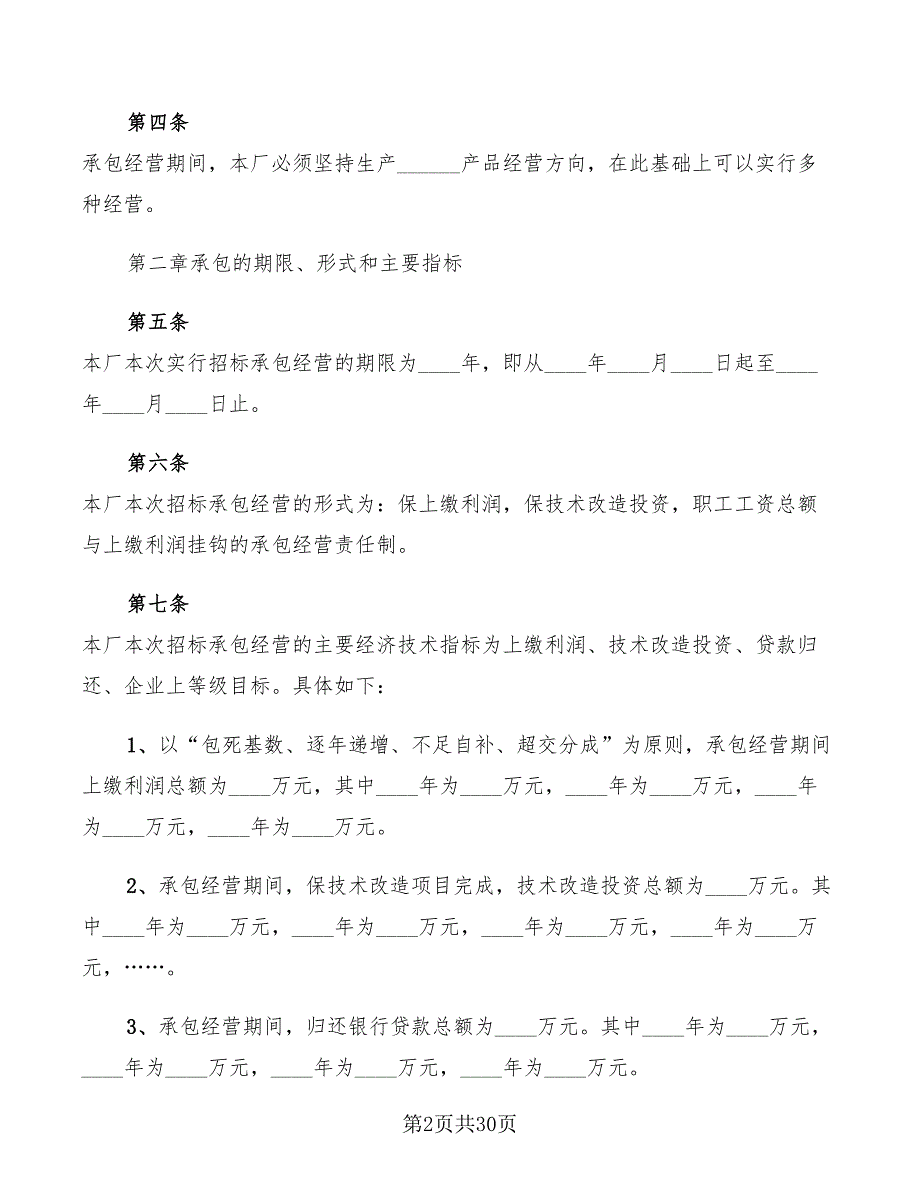 第四条
承包经营期间，本厂必须坚持生产______产品经营方向，在此基础上可以实行多
种经营。
第二章承包的期限、形式和主要指标
第五条
本厂本次实行招标承包经营的期限为____年，即从____年____月____日起至____
年____月____日止。
第六条
本厂本次招标承包经营的形式为：保上缴利润，保技术改造投资，职工工资总额
与上缴利润挂钩的承包经营责任制。
第七条
本厂本次招标承包经营的主要经济技术指标为上缴利润、技术改造投资、贷款归
还、企业上等级目标。具体如下：
1、以“包死基数、逐年递增、不足自补、超交分成”为原则，承包经营期间
上缴利润总额为____万元，其中____年为____万元，____年为____万元，____年
为____万元，____年为____万元。
2、承包经营期间，保技术改造项目完成，技术改造投资总额为____万元。其
中____年为____万元，____年为____万元，____年为____万元，____年为____万
元，……。
3、承包经营期间，归还银行贷款总额为____万元。其中____年为____万元，
____年为____万元，____年为____万元，____年为____万元。
第2页共30页